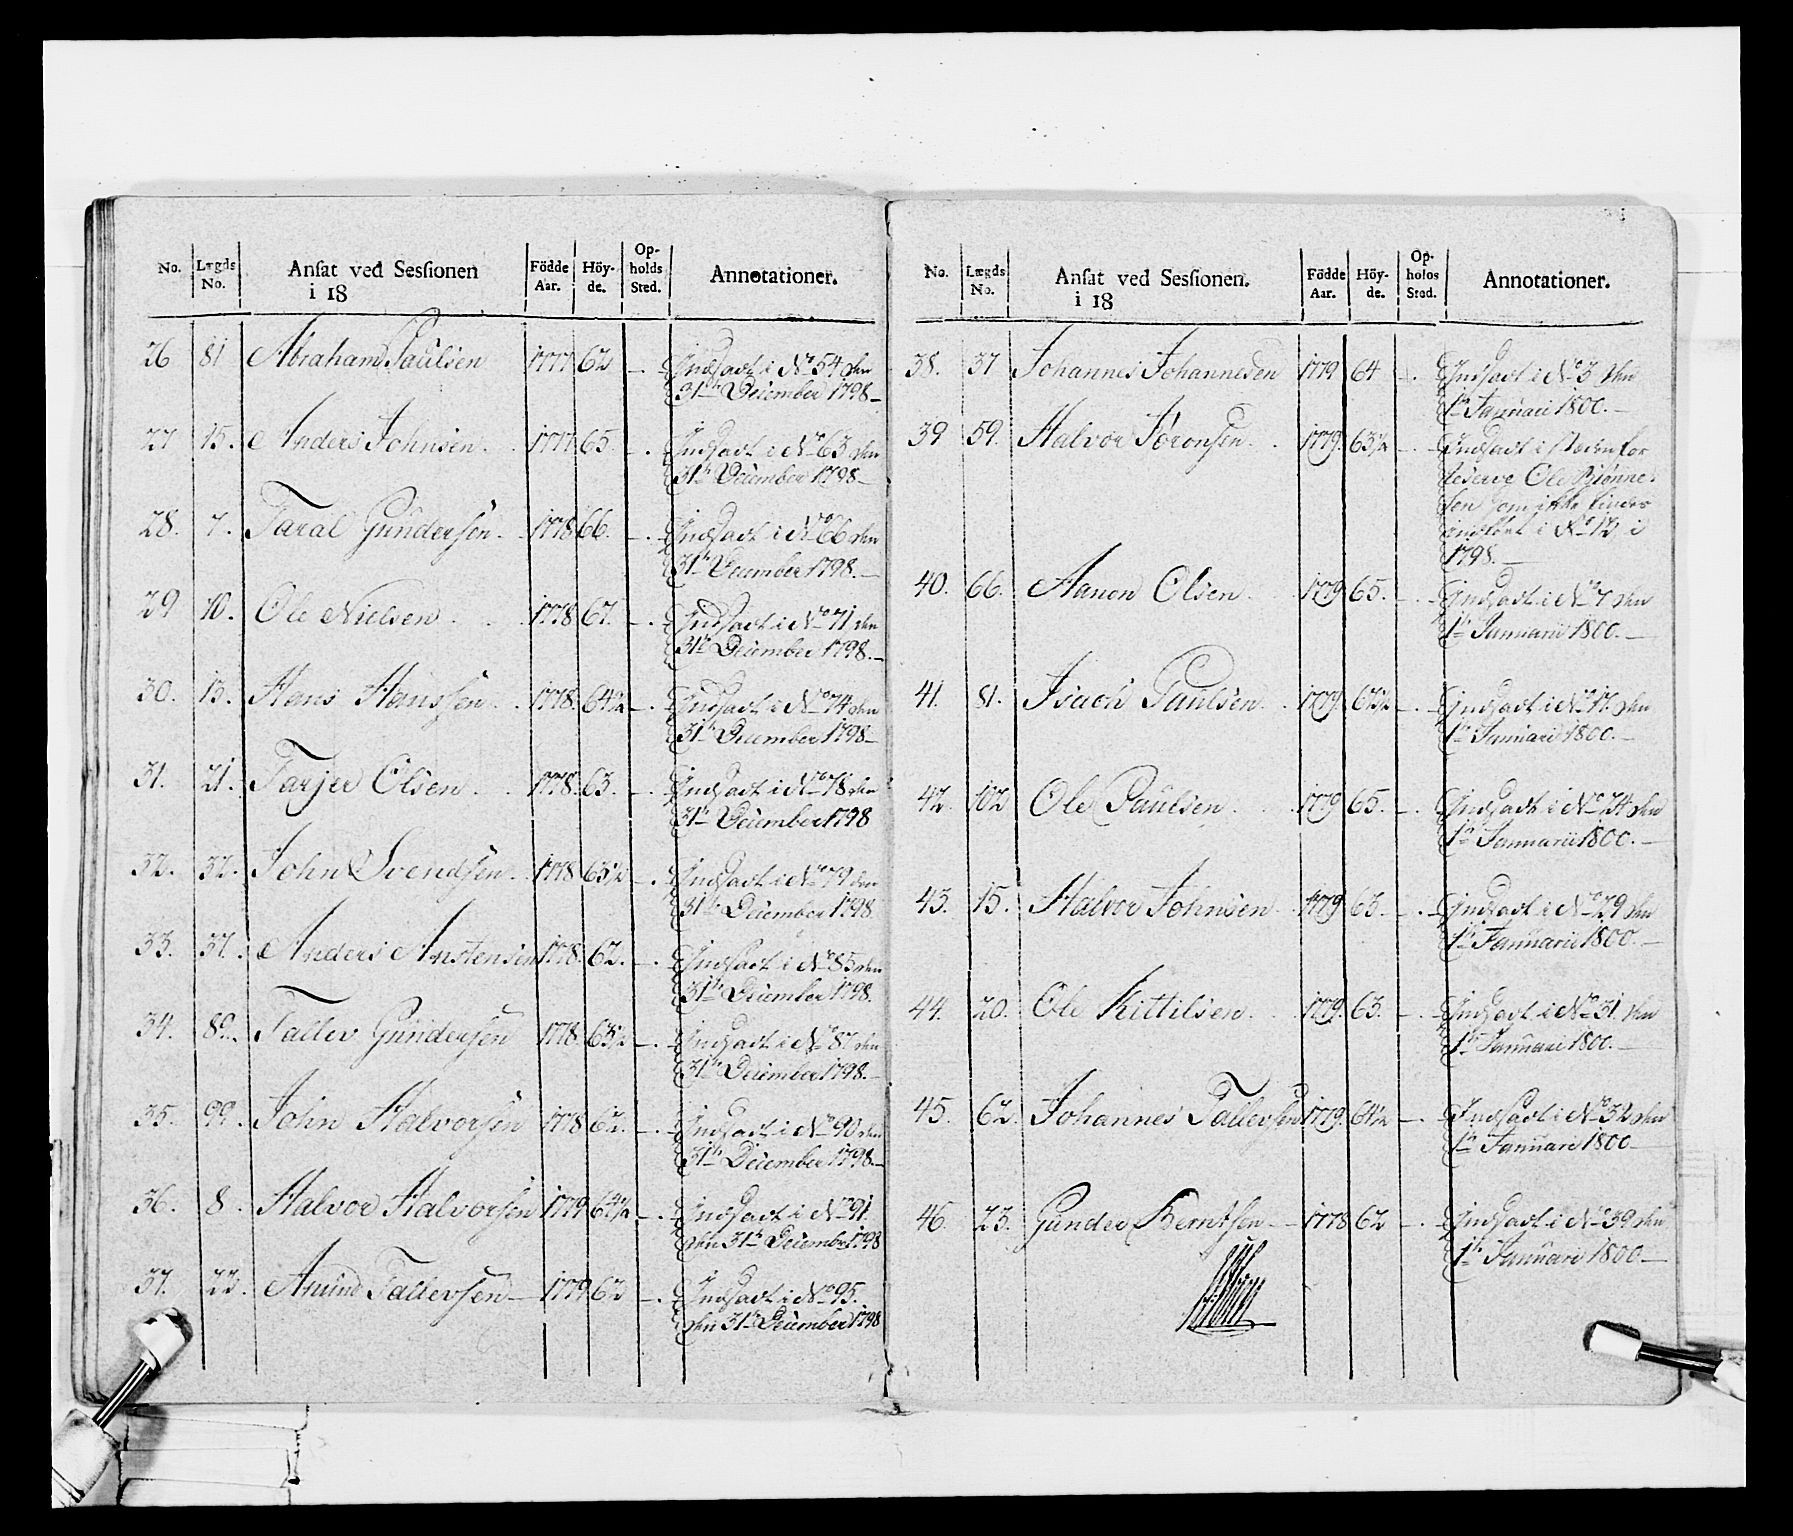 No. Lægds No. Ansat ved Sessionen i 18 Födde Aar. Höy-de. Op-holds Sted. Annotationer.
26 81 Abraham Paulsen 1777 62 -. Indsadt i No 54 den
31te December 1798-
27 15. Anders Johnsen. 1777 65. -. Indsadt i No 63 den
31te December 1798-
28. 7. Taral Gundersen. 1778 66. -. Indsadt i No 66 den
31te December 1798.-
29 10. Ole Nielsen. 1778 67. -. Indsadt i No 71 den
31te December 1798.-
30. 13. Hans Hanssen. 1778. 64½ -. Indsadt i No 74 den
31te December 1798-
31. 21. Tarjer Olsen. 1778. 63. -. Indsadt i No 78 den
31te December 1798
32. 32. John Svendsen. 1778 65½ -. Indsadt i No 79 den
31te December 1798.
33. 37. Anders Arstensen 1778. 62. -. Indsadt i No 85 den
31te December 1798.
34. 80. Tallev Gundersen 1778. 63½ -. Indsadt i No 87 den
31te December 1798.-
35. 99. John Halvorsen 1778 62. -. Indsadt i No 90 den
31te December 1798.-
36. 8. Halvor Halvorsen 1779 64½ -. Indsadt i No 91.
den 31te December 1798
37. 22. Amund Tallevsen- 1779 62 -. Indsadt i No 95.
den 31te December 1798
No. Lægds No. Ansat ved Sessionen. i 18 Födde Aar. Höy-de. Op-holds Sted. Annotationer.
38. 37 Johannes Johannesen 1779 64 -. Indsadt i No 3 den
1te Januari 1800.-
39 59. Halvor Jöronsen. 1779. 63½ -. Indsadt i steden for
reserve Ole Biönne-
sen som ikke findes
indfört i No 12 i
1798.-
40. 66. Aanon Olsen. 1779 65. -. Indsadt i No 7 den
1te Januarii 1800.-
41. 81. Isach Paulsen. 1779. 62½ -. Indsadt i No 17. den
1te Januari 1800.-
42. 102 Ole Paulsen. 1779 65. -. Indsadt i No 24 den
1te Januarii 1800.-
43. 15. Halvor Johnsen. 1779 63. -. Indsadt i No 29 den
1te Januarii 1800.-
44. 20. Ole Kittilsen. 1779. 63. -. Indsadt i No 31. den
1te Januari 1800.-
45. 62. Johannes Tallevsen 1779. 64½ -. Indsadt i No 32 den
1te Januari 1800-
46. 23. Gunder Berntsen- 1778 62 -. Indsadt i No 39 den
1te Januari 1800.-